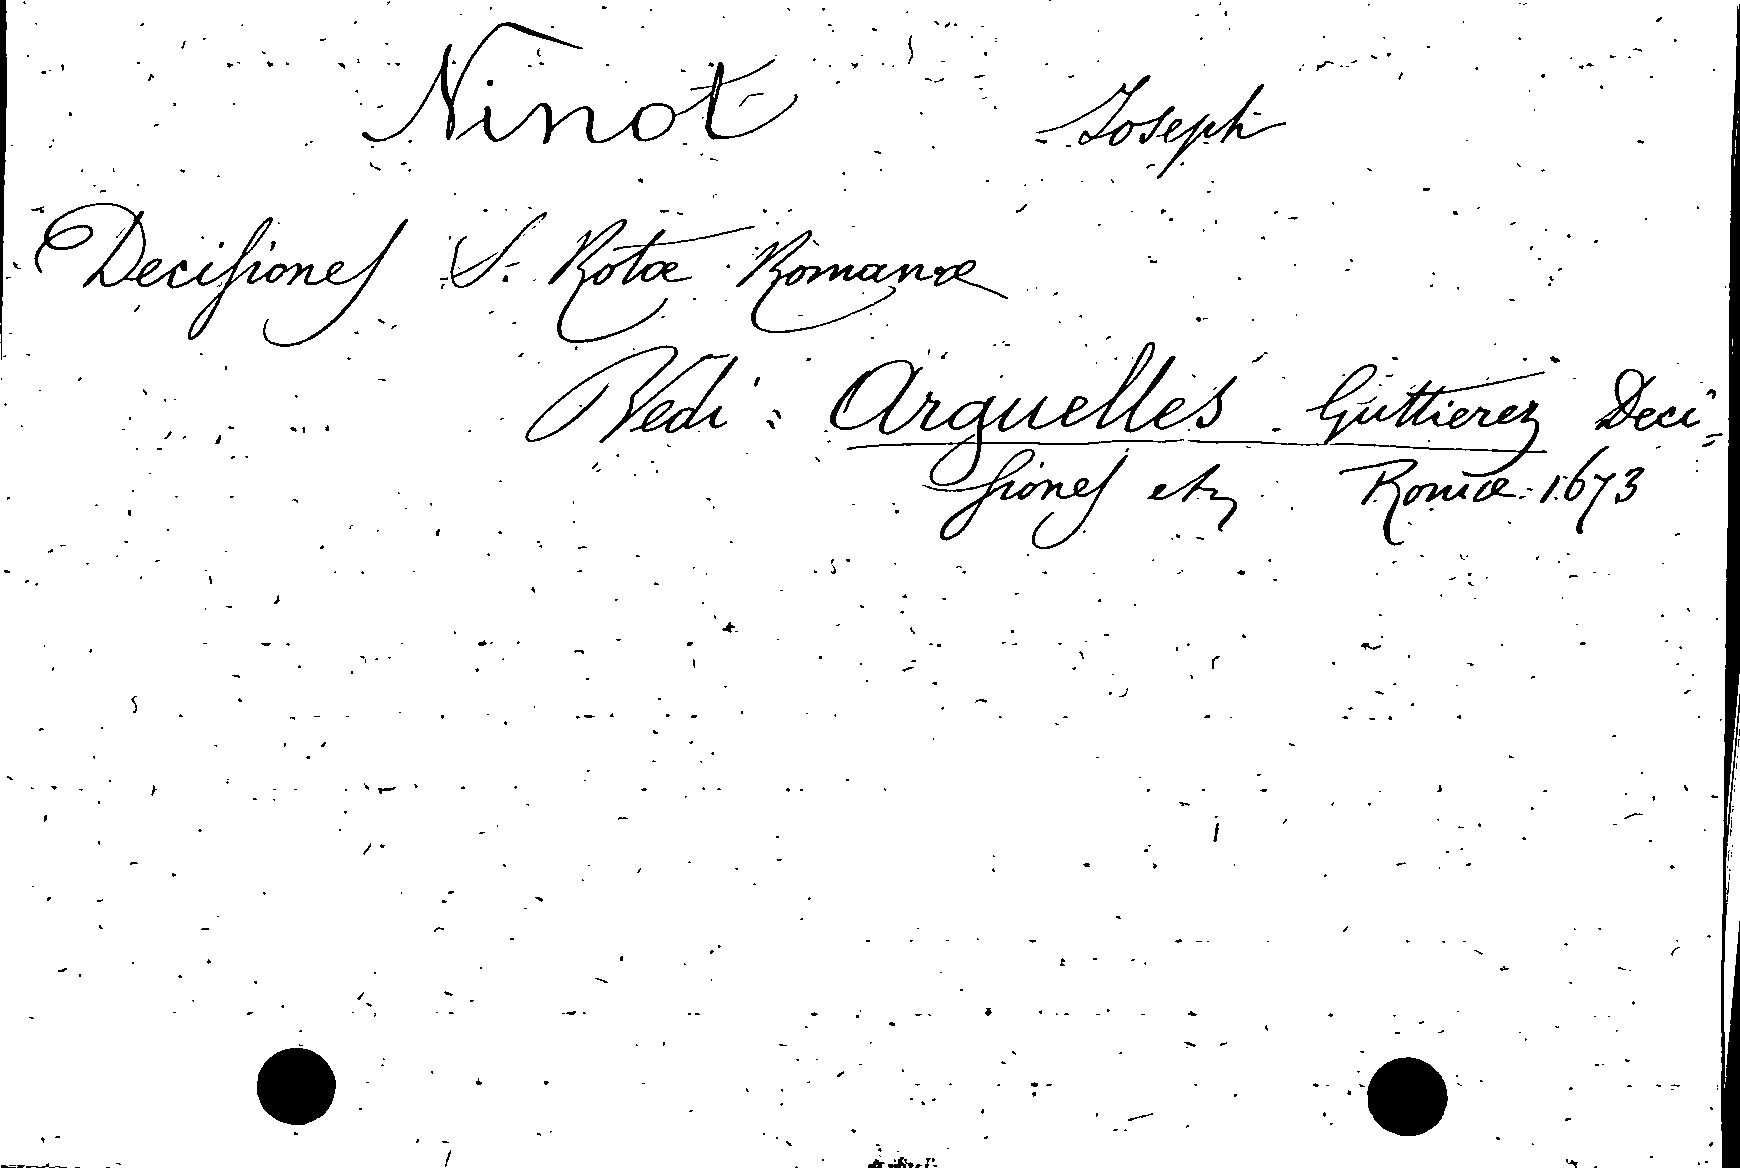 Ninot Joseph
Decisiones S. Rotæ Romanæ
Vedi: Arguelles Guttierez Deci=
siones etc Romæ 1673